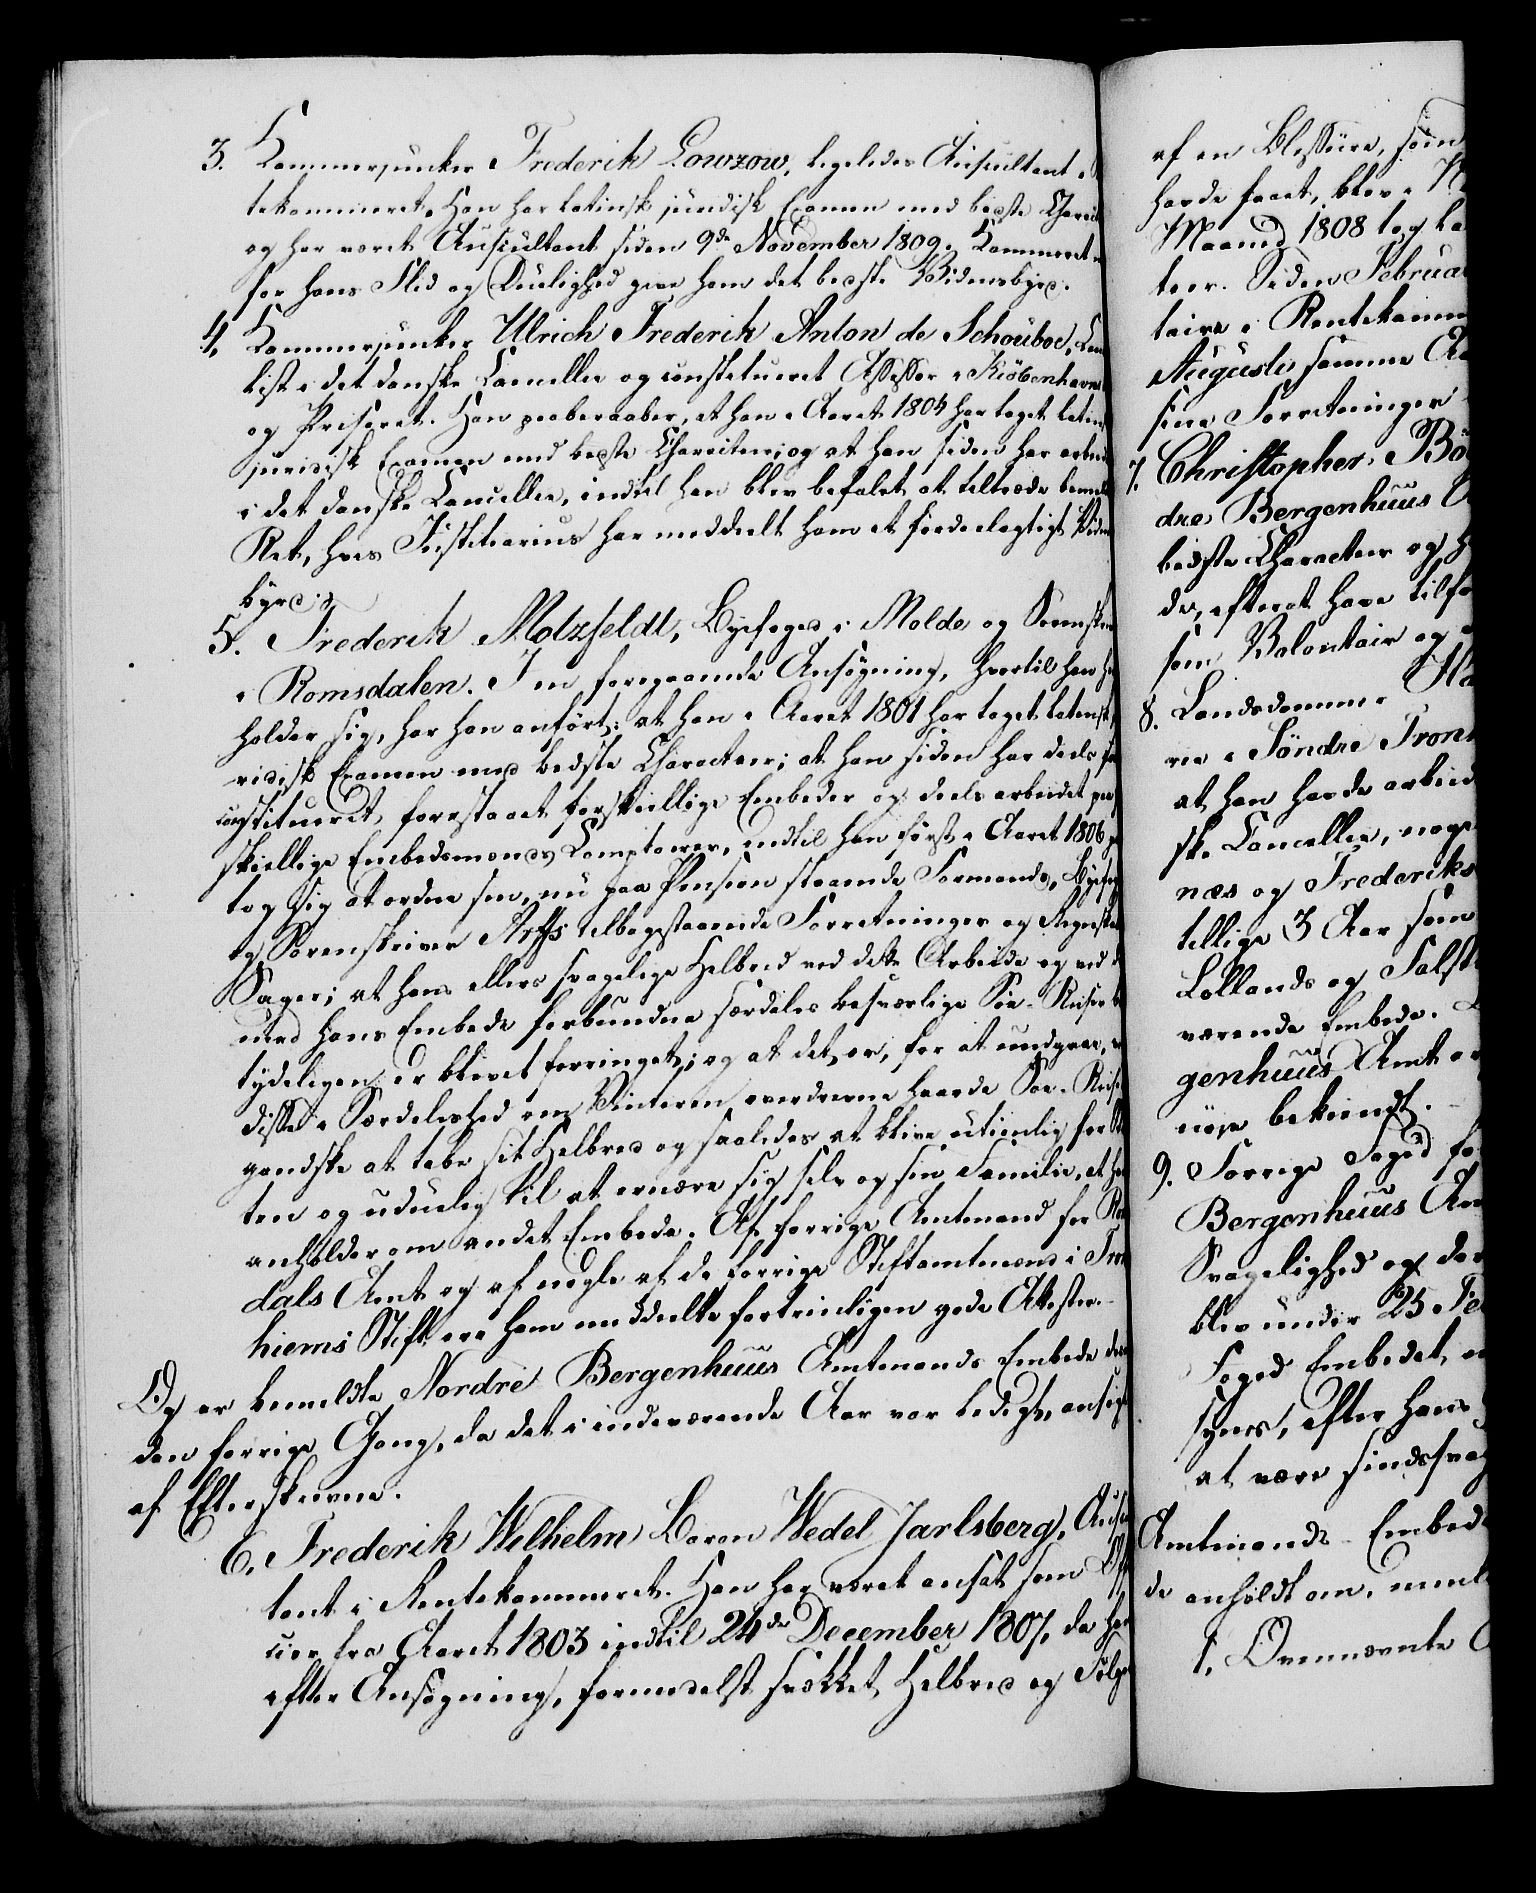 3. Kammerjunker Frederik Lowzow, ligeledes Auscultant i
tekammeret. Han har latinsk juridisk Examen med bedste Charact
og har været Auscultant siden 9de November 1809. Kammeret
for hans Flid og Duelighed give ham det bedste Vidnesbyrd.
4. Kammerjunker Ulrich Frederik Anton de Schouboe, Can
list i det danske Cancellie og constitueret Assessor i Kiöbenhavns
og Priseret. Han paaberaaber, at han i Aaret 1804 har taget latin
juridisk Examen med bedste Characteer; og at han siden har arbei
i det danske Cancellie, indtil han blev befalet at tiltræde bemel
Ret, hvis Justitiarius har meddeelt ham et fordeelagtigt Vidnes
byrd.
5. Frederik Motzfeldt, Byefoged i Molde og Sorenskri
i Romsdalen. I en foregaaende Ansøgning, hvortil han hen
holder sig, har han anført: at han i Aaret 1801 har taget latinsk
ridisk Examen med bedste Characteer; at han siden har deels so
constitueret forestaaet forskiellige Embeder og deels arbeidet paa
skiellige Embedsmænds Comptoirer, indtil han først i Aaret 1806 p
tog sig at ordne sin, nu paa Pension staaende Formands, Byefog
og Sorenskriver Arffs tilbagestaaende Forretninger og Regnskab
Sager; at hans ellers svagelige Helbred ved dette Arbeide og ved d
med hans Embede forbundne særdeles besværlige Søe-Reiser be
tydeligen er blevet forringet; og at det er, for at undgaae, ved
disse i Særdeleshed om Vinteren overdrevne haarde Søe-Reise
gandske at tabe sit Helbred og saaledes at blive utienlig for Sta
ten og uduelig til at ernære sig selv og sin Familie, at han
anholder om andet Embede. Af forrige Amtmand for Rom
dals Amt og af nogle af de forrige Stiftamtmænd i Tron
hiems Stift ere ham meddeelte fortrinligen gode Attester.
Og er bemeldte Nordre Bergenhuus Amtmands Embede des
den forrige Gang, da det i indeværende Aar var ledigt, ansøgt
af Efterskrevne.
6. Frederik Wilhelm Baron Wedel Jarlsberg, Auscul
tant i Rentekammeret. Han har været ansat som Offi
ceer fra Aaret 1803 indtil 24de December 1807, da han
efter Ansøgning, formedelst svækket Helbred og Følge
af en Blessure, som
havde faaet, blev i
Maaned 1808 tog ha
teer. Siden Februa
taire i Rentekamm
Augusti samme Aa
sine Forretninger
7. Christopher Bö
dre Bergenhuus
bedste Characteer og h
de, efterat have tilfo
som Volontair og
8. Landsdommer Ha
rie i Söndre Tron
at han havde arbeid
ske Cancellie, noge
næs og Frederiks
tillige 3 Aar som
Lollands og Falst
værende Embede.
genhuus Amt er
nøie bekiendt.
9. Forrige Foged fo
Bergenhuus Am
Svagelighed og der
blev under 25 Fe
Foged Embedet, er
synes, efter hans
at være sindssvag
Amtmands-Embed
de anholdt om, neml
1. Ovennævnte